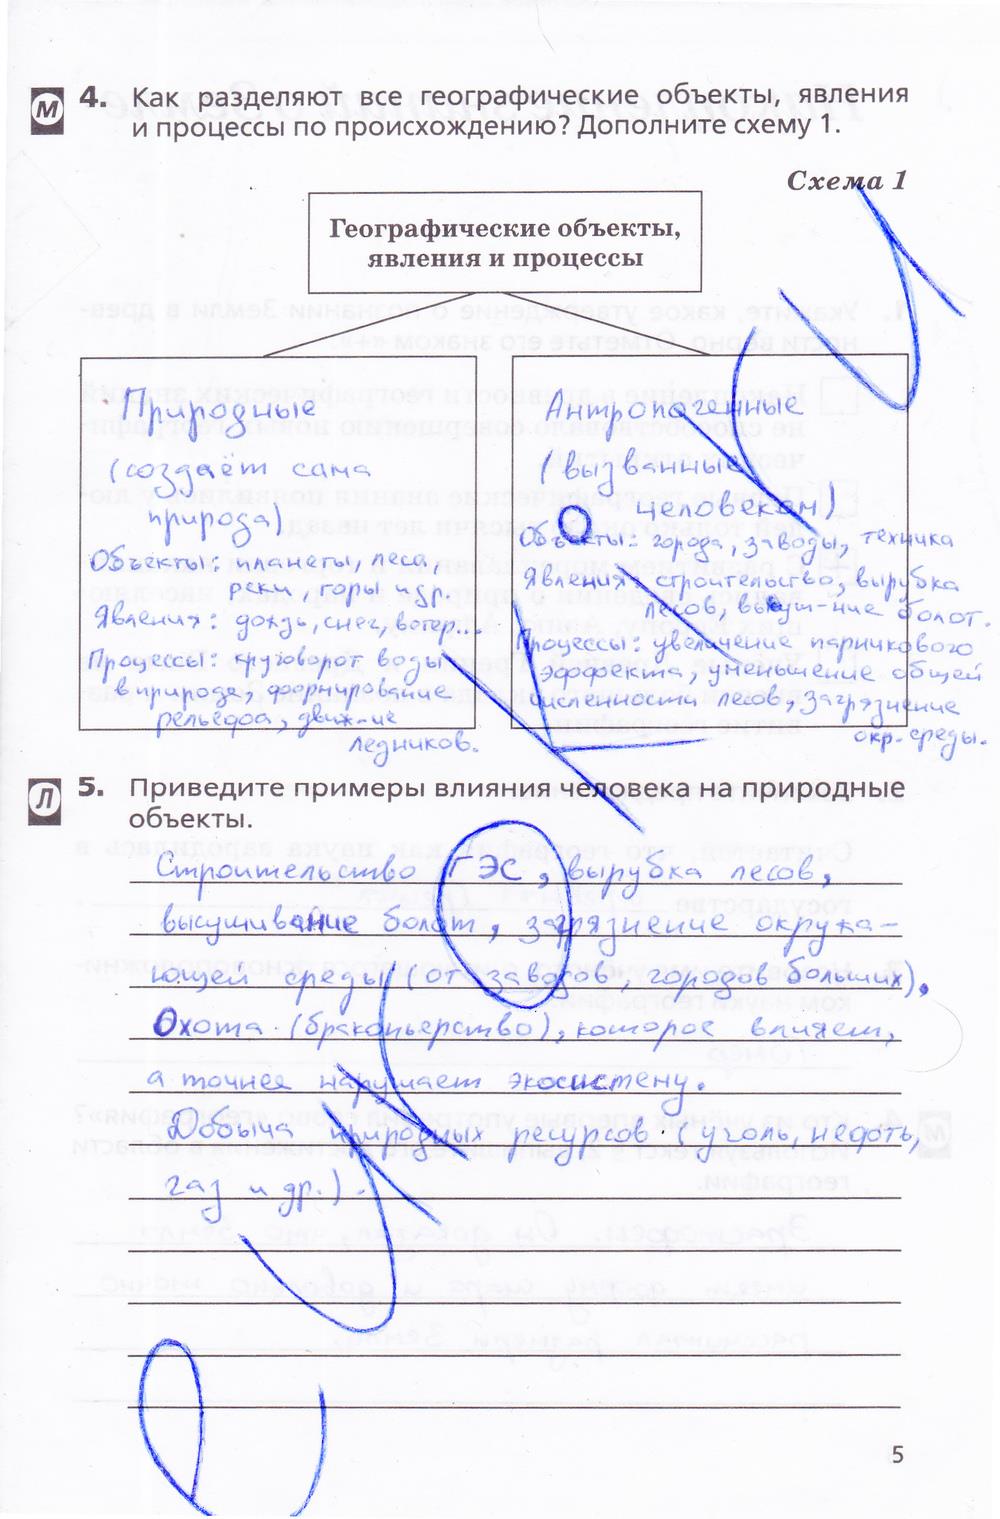 М 4. Как разделяют все географические объекты, явления
и процессы по происхождению? Дополните схему 1.
Схема 1
Географические объекты,
явления и процессы
Природные
(создаёт сама
природа)
Объекты: планеты, леса,
реки, горы и др.
Явления: дождь, снег, ветер...
Процессы: круговорот воды
в природе, формирование
рельефа, движ-ие
ледников.
Антропогенные
(вызванные
человеком)
Объекты: города, заводы, техника
Явления: строительство, вырубка
лесов, высуш-ние болот.
Процессы: увеличение парникового
эффекта, уменьшение общей
численности лесов, загрязнение
окр. среды.
Л 5. Приведите примеры влияния человека на природные
объекты.
Строительство ГЭС, вырубка лесов,
высушивание болот, загрязнение окружа-
ющей среды (от заводов, городов больших),
Охота (браконьерство), которое влияет,
а точнее нарушает экосистему.
Добыча природных ресурсов (уголь, нефть,
газ и др.).
5